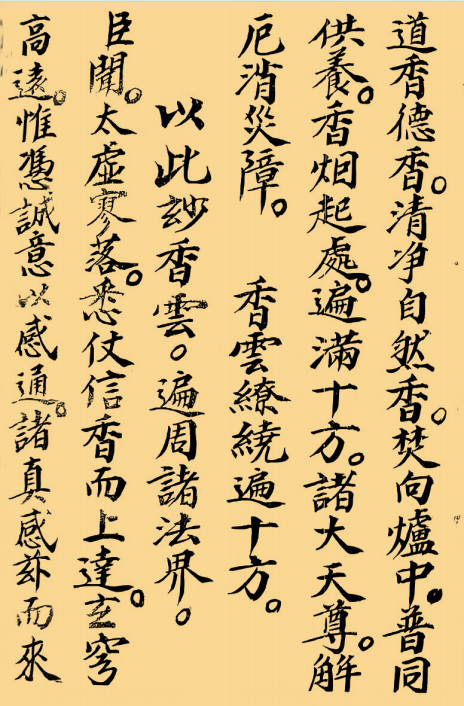 道香德香。清净自然香。焚向爐中。普同
供養。香烟起處。遍滿十方。諸大天尊。解
厄消災障。　香雲繚繞遍十方。
以此玅香雲。遍周諸法界。
臣聞。太虛寥落。悉仗信香而上達。玄穹
高遠。惟憑誠意以感通。諸真感䢒而來